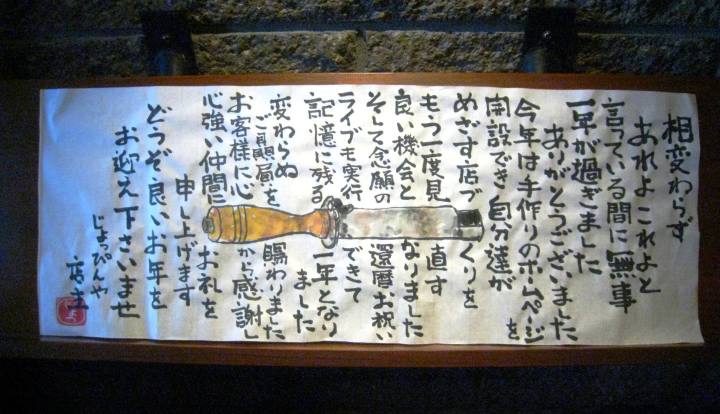 相変わらず
あれよこれよと
言っている間に無事
一年が過ぎました
ありがとうございました
今年は手作りのホームページを
開設でき自分達が
めざす店づくりを
もう一度見直す
良い機会となりました
そして念願の還暦お祝い
ライブも実行できて
記憶に残る一年となり
ました
変わらぬ
ご贔屓を賜わりました
お客様に心から感謝し
心強い仲間にお礼を
申し上げます
どうぞ良いお年を
お迎え下さいませ
じょっぴんや
店主